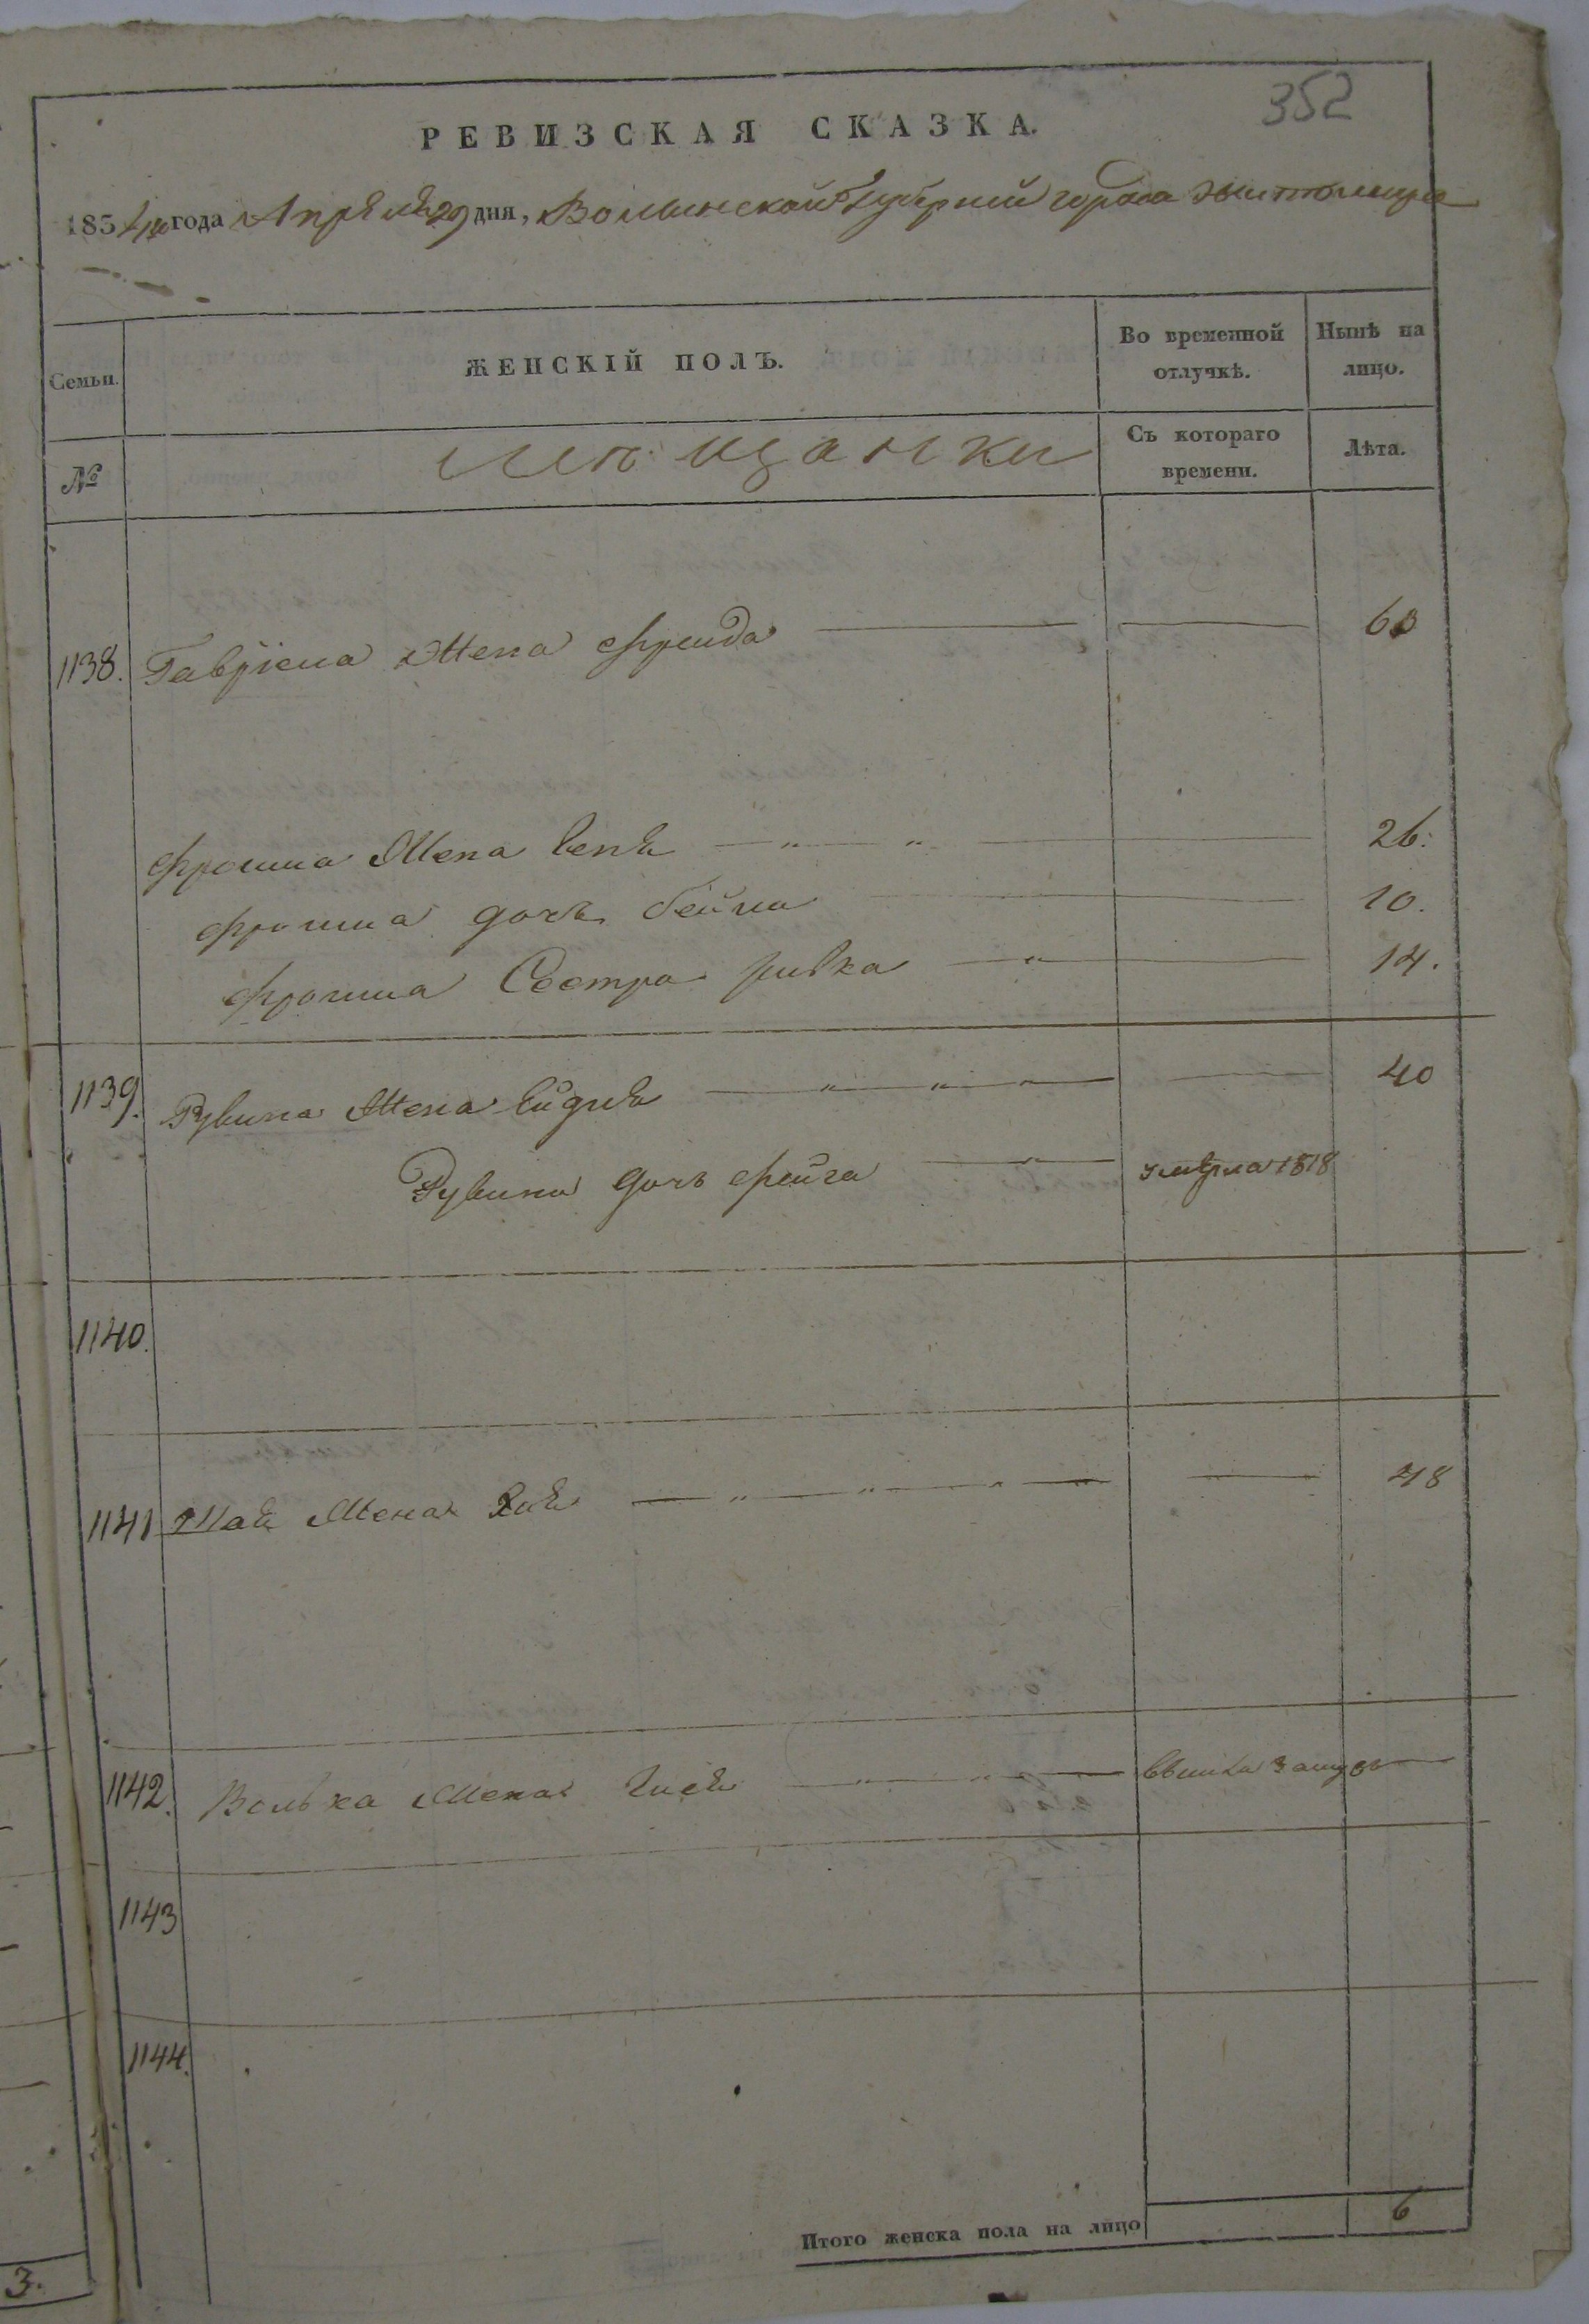 352
РЕВИЗСКАЯ СКАЗКА.
185 года Апрѣля 29 дня, Волынской Губерніи города Житомира
Семьи.
ЖЕНСКІЙ ПОЛЪ.
Во временной отлучкѣ.
Нынѣ на лицо.
№
Мѣщанки
Съ котораго времени.
Лѣта.
1138. Гавріела Жена Фрейда 60
Фроима Жена 26.
Фроима дочь Бейла 10.
Фроима Сестра Ривка 14.
1139. Рувина Жена 40
Рувина дочь Фейга умерла 1818
1140.
1141 Жена Хая 48
1142. Волька Жена вышла замужъ
1143
1144.
Итого женска пола на лицо 6
3.